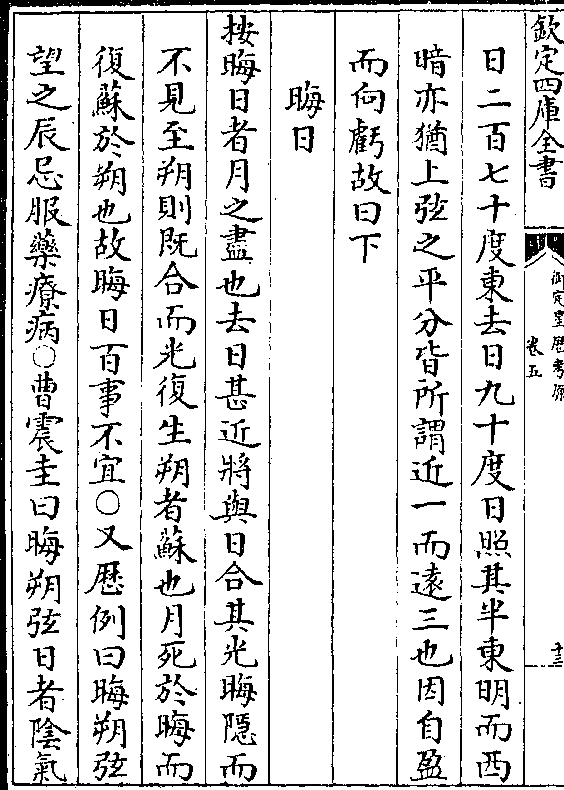 欽定四庫全書
御定星歷考原
卷五
十三
日二百七十度東去日九十度日照其半東明而西
暗亦猶上弦之平分皆所謂近一而遠三也因自盈
而向虧故曰下
晦日
按晦日者月之盡也去日甚近將與日合其光晦隱而
不見至朔則既合而光復生朔者蘇也月死於晦而
復蘇於朔也故晦日百事不宜○又歷例曰晦朔弦
望之辰忌服藥療病○曹震圭曰晦朔弦日者陰氣